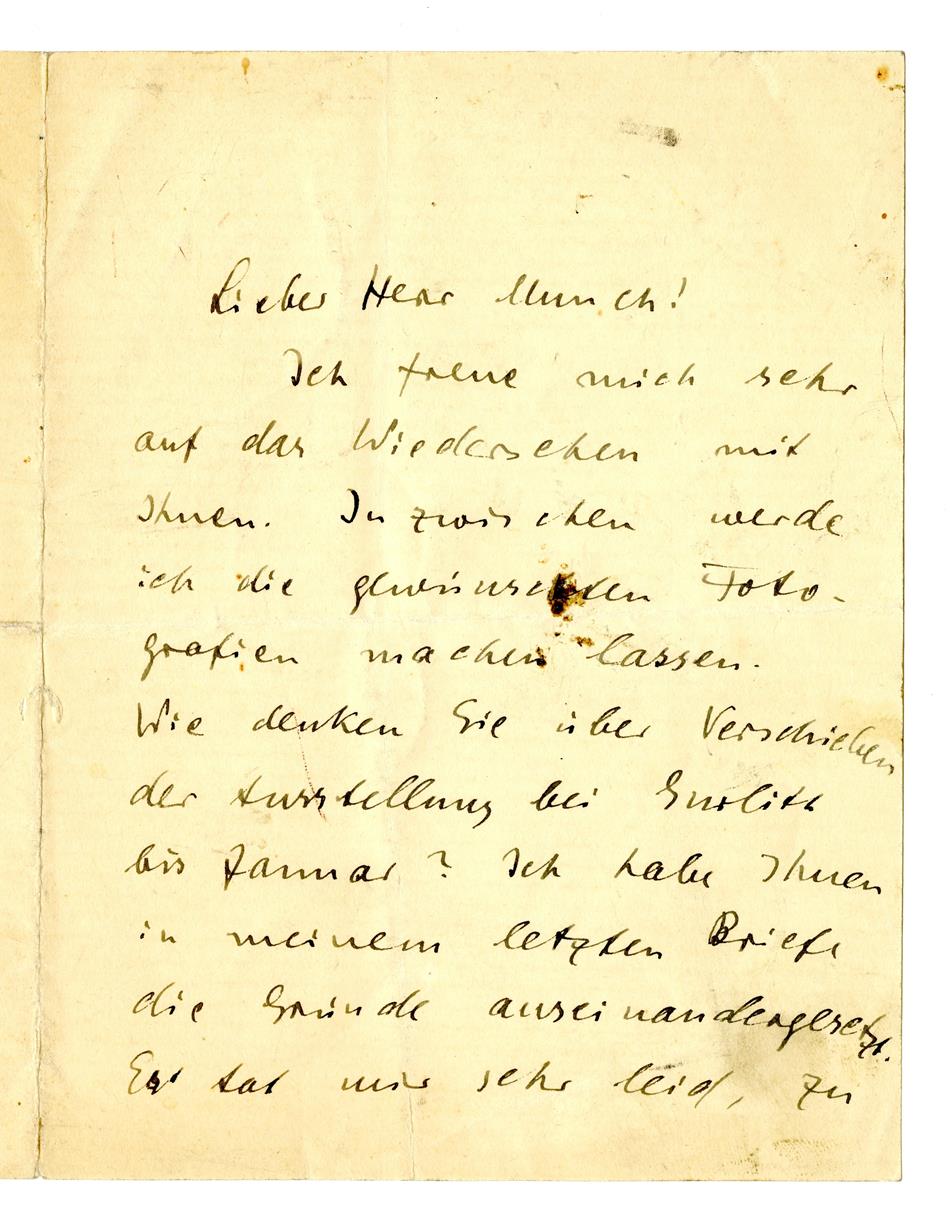 Lieber Herr Munch!
Ich freue mich sehr
auf das Wiedersehen mit
Ihnen. Inzwischen werde
ich die gewünschten Foto-
grafien machen lassen.
Wie denken Sie über Verschieben
der Ausstellung bei Gurlitt
bis Januar? Ich habe Ihnen
in meinem letzten Briefe
die Gründe auseinandergesetzt.
Es tat mir sehr leid, zu